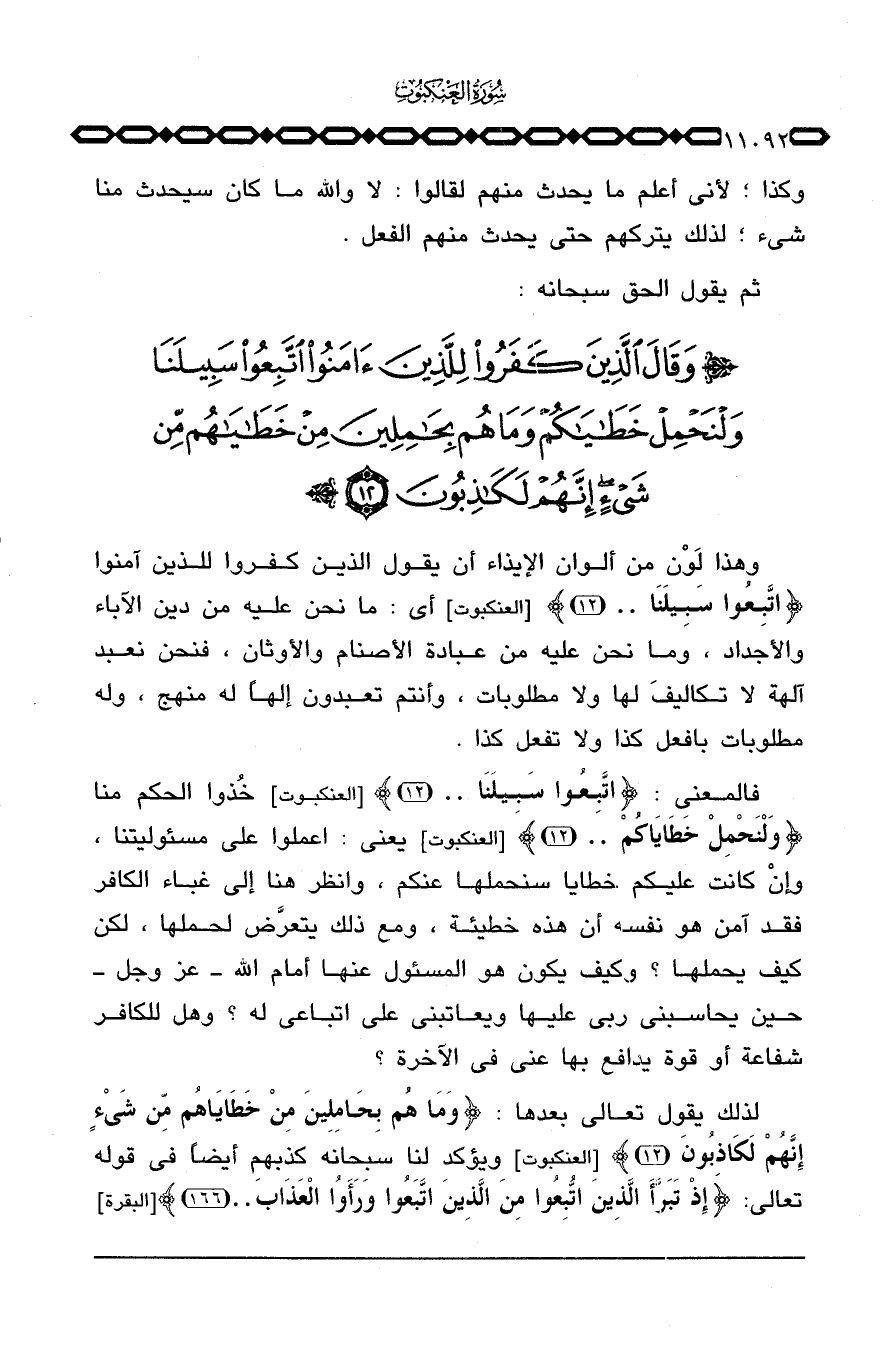 سُورَةُ العَنْكَبُوت
١١٠٩٢
وكذا ؛ لأنى أعلم ما يحدث منهم لقالوا : لا والله مـا كان سيحدث منا
شىء ؛ لذلك يتركهم حتى يحدث منهم الفعل .
ثم يقول الحق سبحانه :
﴿ وَقَالَ ٱلَّذِينَ كَفَرُواْ لِلَّذِينَ ءَامَنُواْ ٱتَّبِعُواْ سَبِيلَنَا
وَلْنَحْمِلْ خَطَٰيَٰكُمْ وَمَا هُم بِحَٰمِلِينَ مِنْ خَطَٰيَٰهُم مِّن
شَىْءٍ ۖ إِنَّهُمْ لَكَٰذِبُونَ ١٢ ﴾
وهذا لَوْن من ألـوان الإيذاء أن يقـول الذيـن كـفـروا للـذين آمنوا
﴿ اتَّبِعُوا سَبِيلَنَا .. (١٢) ﴾ [العنكبوت] أى : ما نحن علـيه من دين الآباء
والأجداد ، ومـا نحن عليه من عـبادة الأصنام والأوثان ، فنحن نعـبد
آلهة لا تـكاليفَ لها ولا مطلوبات ، وأنتم تعـبدون إلهـاً له منهج ، وله
مطلوبات بافعل كذا ولا تفعل كذا .
فالمـعنى : ﴿ اتَّبِعُوا سَبِيلَنَا .. (١٢) ﴾ [العنكبـوت] خُذوا الحكم منا
﴿ وَلْنَحْمِلْ خَطَايَاكُمْ .. (١٢) ﴾ [العنكبوت] يعنى : اعملوا على مسئوليتنا ،
وإنْ كانت عليـكم خطايا سنحملهـا عنكم ، وانظر هنا إلى غبـاء الكافر
فقـد آمن هو نفسـه أن هذه خطيئـة ، ومع ذلك يتعرَّض لحـملها ، لكن
كيف يحملهـا ؟ وكيف يكون هو المسئول عنهـا أمام الله - عز وجل -
حـين يحاسـبنى ربى عليـها ويعـاتبنى على اتبـاعى له ؟ وهل للكافـر
شفاعة أو قوة يدافع بها عنى فى الآخرة ؟
لذلك يقول تعـالى بعدها : ﴿ وَمَا هُم بِحَامِلِينَ مِنْ خَطَايَاهُم مِّن شَىْءٍ
إِنَّهُمْ لَكَاذِبُونَ (١٢) ﴾ [العنكبوت] ويؤكد لنا سبحانه كذبهم أيضـاً فى قوله
تعالى: ﴿ إِذْ تَبَرَّأَ الَّذِينَ اتُّبِعُوا مِنَ الَّذِينَ اتَّبَعُوا وَرَأَوُا الْعَذَابَ..(١٦٦) ﴾ [البقرة]